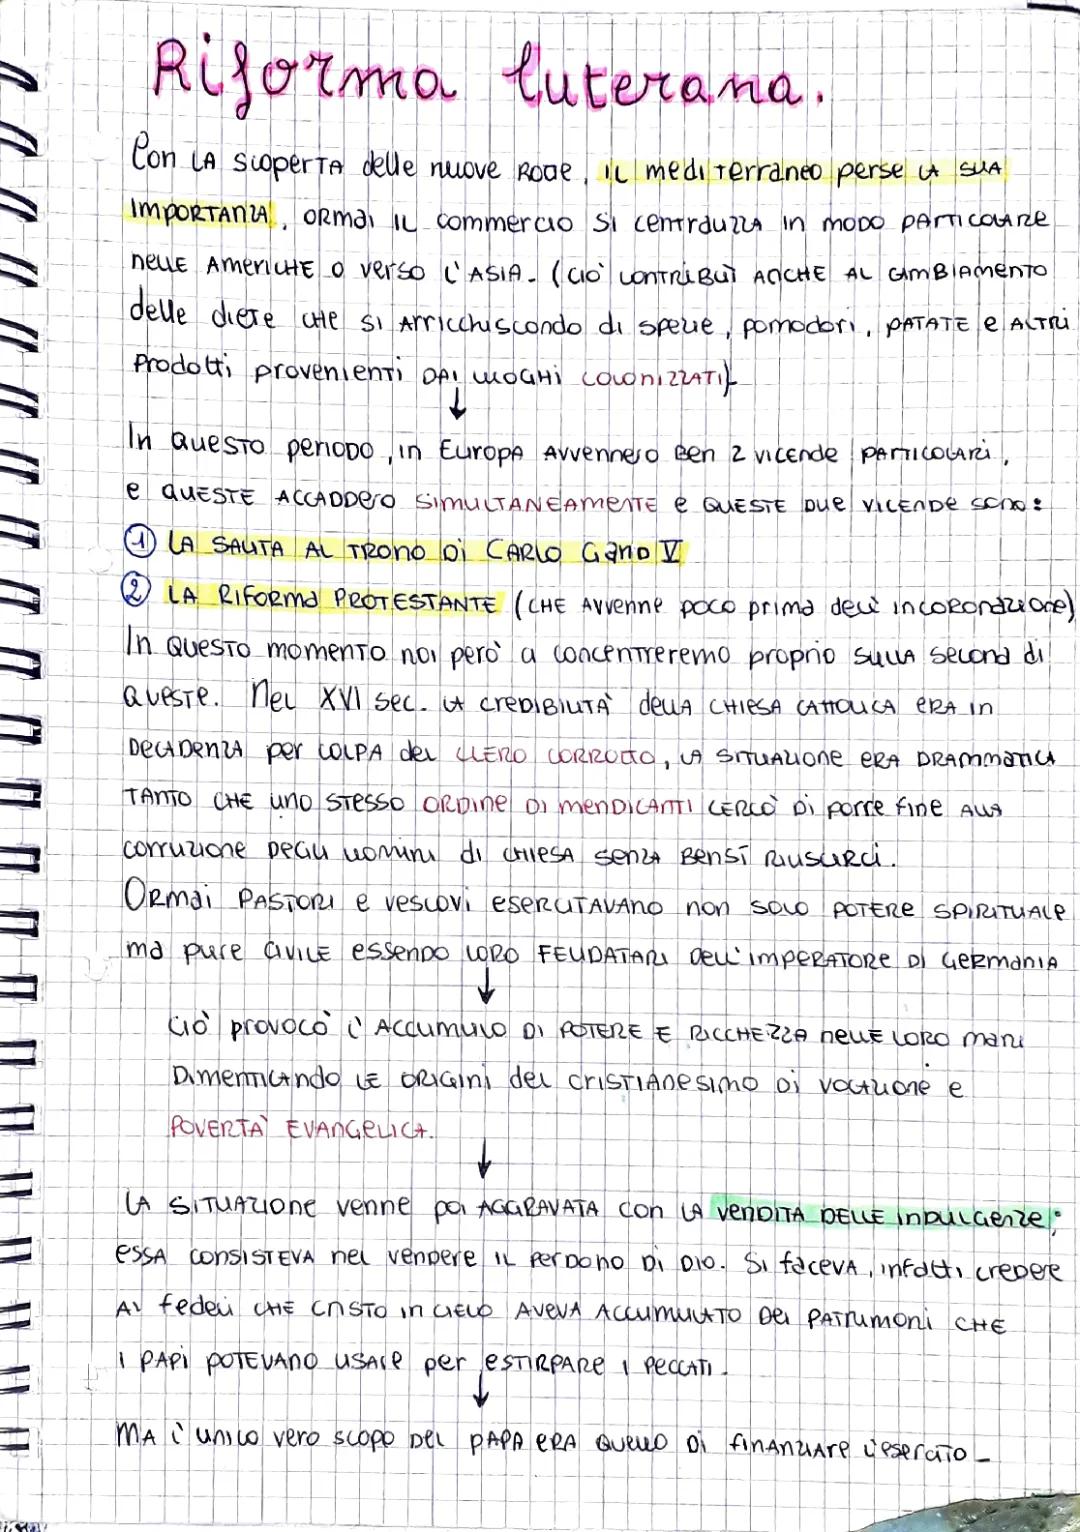 Riforma luterana.
Con LA scoperTA delle nuove ROTTE, IL mediTerraneo perse LA SUA
IMPORTANZA, ORMAI IL commercio SI centralizzA in modo PARTICOLARE
nelle AMERICHE o verso L'ASIA. (ciò contribuì ANCHE AL CAMBIAMENTO
delle diete che si ARRicchiscondo di spezie, pomodori, PATATE e ALTRI
Prodotti provenienti DAI LUOGHI COLONIZZATI)
↓
In QUESTO periodo, in Europa Avvennero Ben 2 vicende PARTICOLARI,
e QUESTE ACCADDERO SIMULTANEAMENTE e QUESTE DUE VICENDE sono:
① LA SALITA AL TRONO DI CARLO GanO V
② LA RIFORMA PROTESTANTE (CHE Avvenne poco prima dell'incoronazione)
In QUESTO momento noi però a concentreremo proprio sulla second di
queste. Nel XVI sec. LA CREDIBILITÀ dellA CHIESA CATTOLICA ERA in
DECADENZA per COLPA del CLERO CORROTTO, LA SITUAZIONE ERA DRAMMATICA
TANTO CHE uno STESSO ORDINE DI MENDICANTI CERCÒ DI porre fine ALLA
corruzione DEGLI uomini di CHIESA senza BENSÌ RIUSCIRCI.
ORMAI PASTORI e vescovi eserciTAVANO non SOLO POTERE SPIRITUALE
ma pure CIVILE essendo LORO FEUDATARI DELL'IMPERATORE DI GERMANIA
↓
Ciò provocò l'ACCUMULO DI POTERE E RICCHEZZA nelle LORO mani
DIMENTICANDO LE ORIGINI del CRISTIANESIMO DI VOCAZIONE e
POVERTÀ EVANGELICA.
↓
LA SITUAZIONE venne poi AGGRAVATA con LA VENDITA DELLE INDULGENZE;
ESSA CONSISTEVA nel vendere IL PERDONO DI DIO. Si faceva, infatti credere
AI fedeli CHE CRISTO in CIELO AVEVA ACCUMULATO DEI PATRIMONI CHE
I PAPI POTEVANO USARE per ESTIRPARE I PECCATI.
↓
MA l'unico vero scopo DEL PAPA ERA QUELLO DI finanziare l'esercito